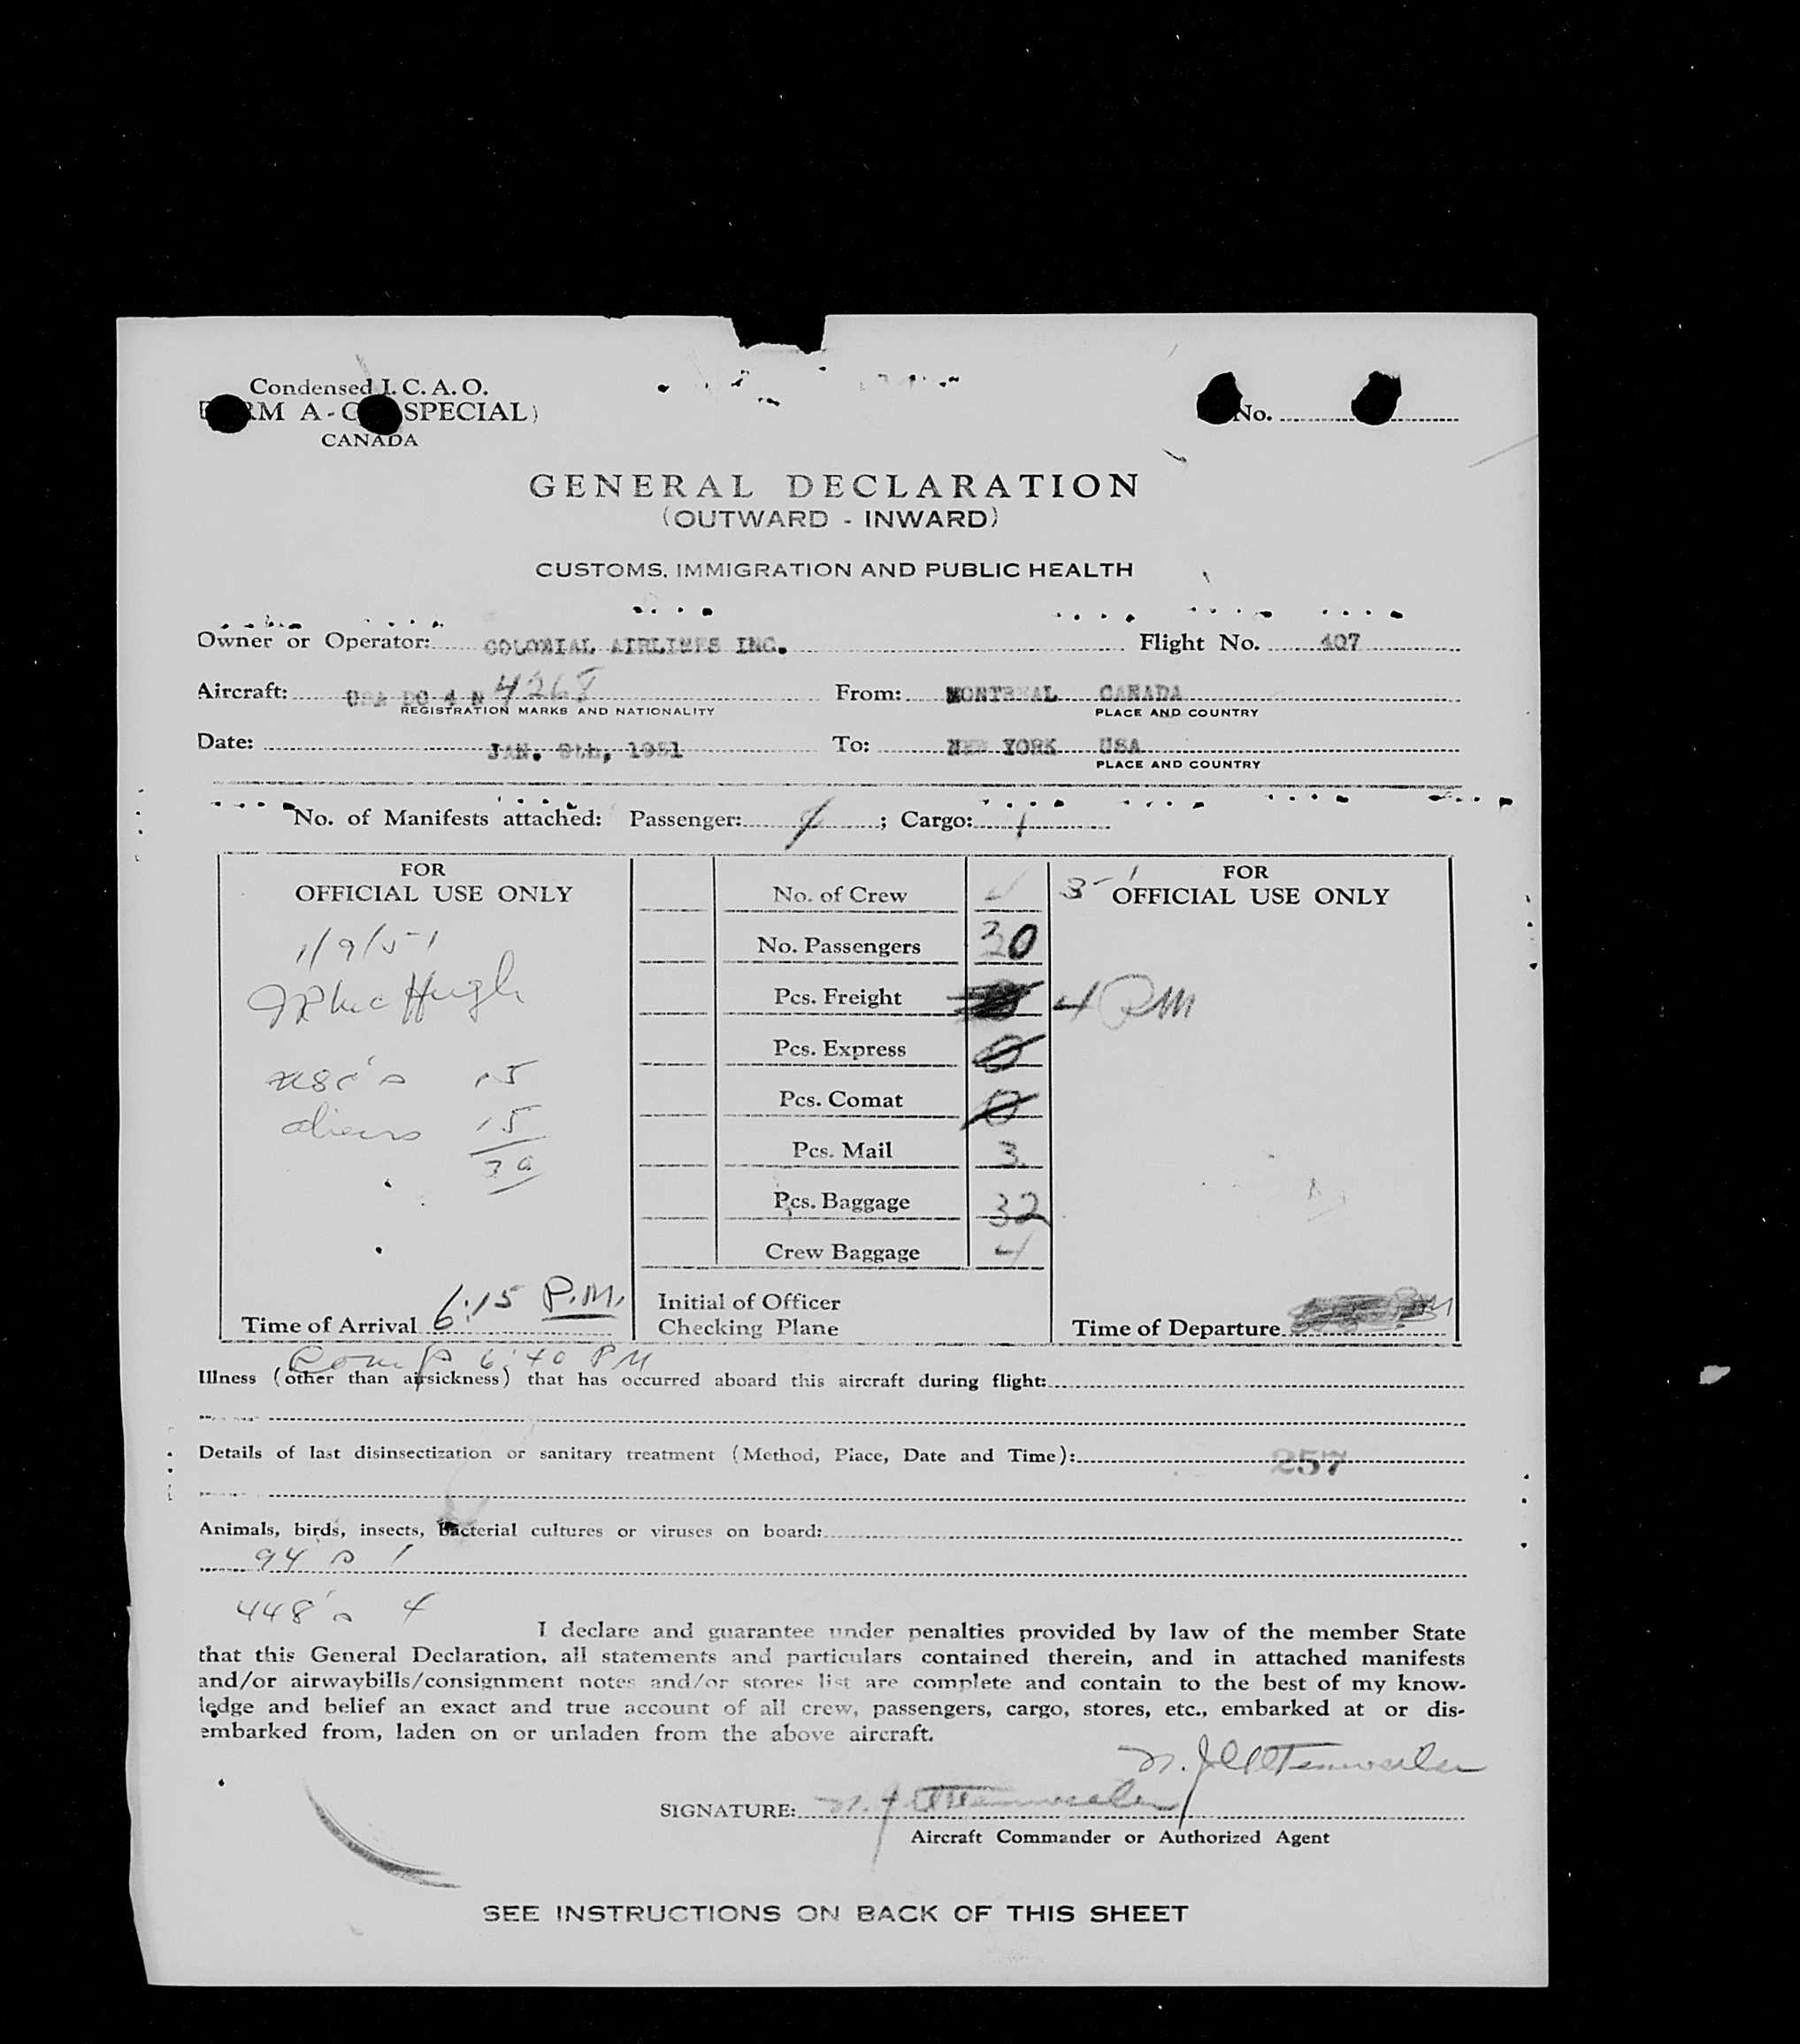 Condensed I. C. A. O.
RM A - G SPECIAL)
CANADA
No.
GENERAL DECLARATION
(OUTWARD - INWARD)
CUSTOMS, IMMIGRATION AND PUBLIC HEALTH
Owner or Operator: COLONIAL AIRLINES INC. Flight No. 407
Aircraft: USA DC 4 N 4268 From: MONTREAL CANADA
REGISTRATION MARKS AND NATIONALITY PLACE AND COUNTRY
Date: JAN. 9th, 1951 To: NEW YORK USA
PLACE AND COUNTRY
No. of Manifests attached: Passenger: ; Cargo: 1
FOR
OFFICIAL USE ONLY
1/9/51
J P McHugh
USC's 15
aliens 15
30
Time of Arrival 6:15 P.M.
No. of Crew
No. Passengers 30
Pcs. Freight
Pcs. Express 0
Pcs. Comat 0
Pcs. Mail 3
Pcs. Baggage 32
Crew Baggage 4
Initial of Officer
Checking Plane
FOR
3 - 1 OFFICIAL USE ONLY
4 PM
Time of Departure
Comp 6:40 PM
Illness (other than airsickness) that has occurred aboard this aircraft during flight:
Details of last disinsectization or sanitary treatment (Method, Place, Date and Time): 257
Animals, birds, insects, bacterial cultures or viruses on board:
94 s 1
448's 4
I declare and guarantee under penalties provided by law of the member State
that this General Declaration, all statements and particulars contained therein, and in attached manifests
and/or airwaybills/consignment notes and/or stores list are complete and contain to the best of my know-
ledge and belief an exact and true account of all crew, passengers, cargo, stores, etc., embarked at or dis-
embarked from, laden on or unladen from the above aircraft.
SIGNATURE:
Aircraft Commander or Authorized Agent
SEE INSTRUCTIONS ON BACK OF THIS SHEET